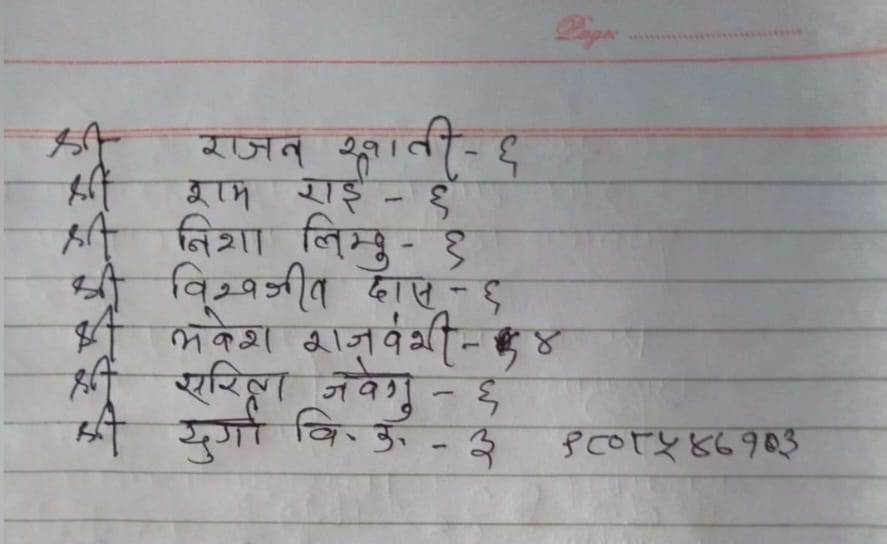 Page:
श्री राजन खाती - ६
श्री राम राई - ६
श्री निशा लिम्बु - ६
श्री विश्वजीत दास - ६
श्री मकेश राजवंशी - ४
श्री सरिता जवेगु - ६
श्री दुर्गा वि. क. - ३ ९८०८५४६१०३